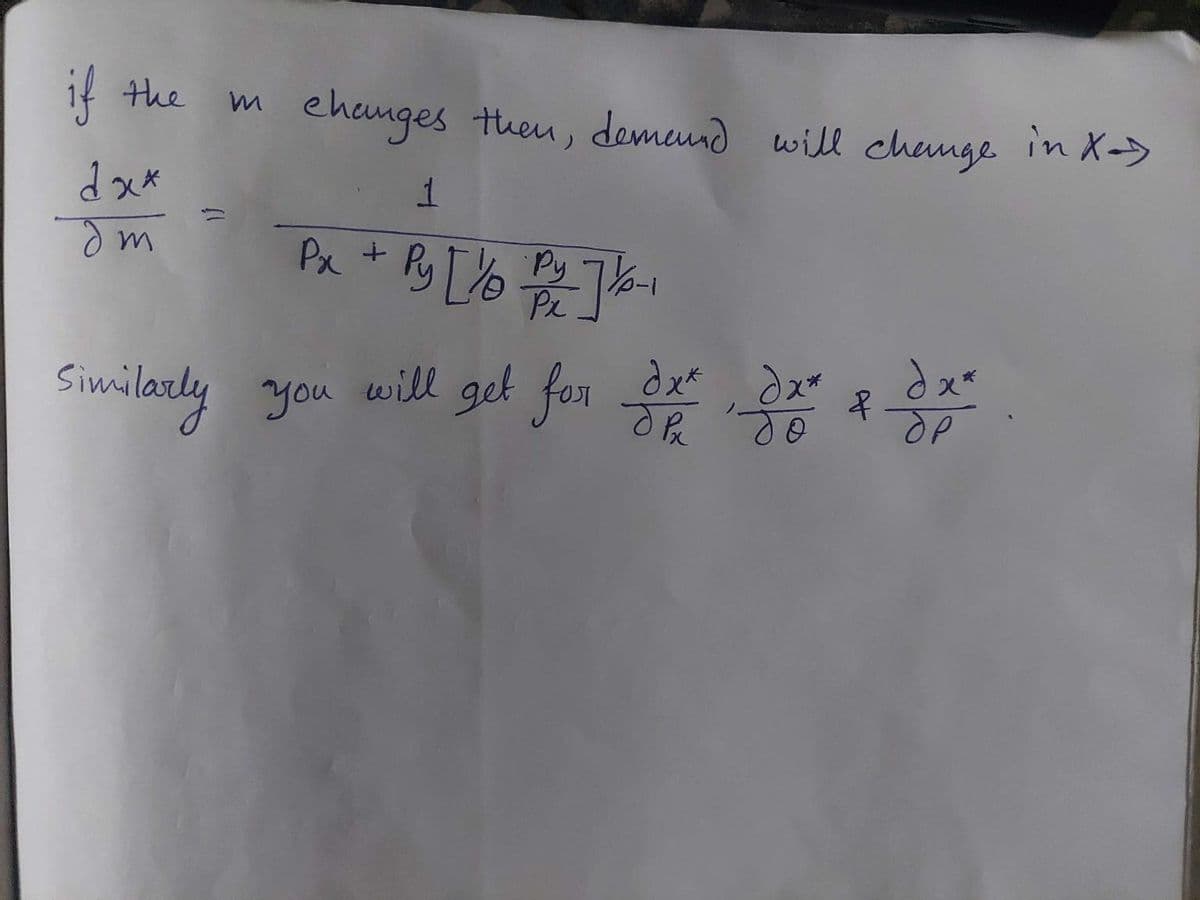 if the m changes then, demand will change in X→
∂x*/∂m = 1 / (Px + Py [1/θ Py/Px]^(1/ρ-1))
Similarly you will get for ∂x*/∂Px , ∂x*/∂θ & ∂x*/∂ρ .